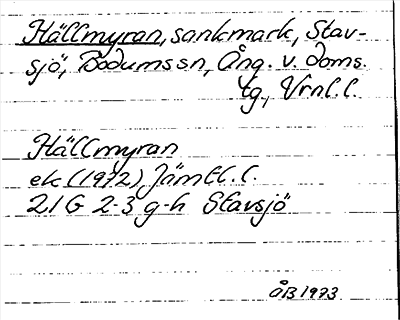 Hällmyran, sankmark, Stav-
sjö, Bodums sn, Ång. v. doms.
tg., Vrnl. l.
Hällmyran
ek (1972) Jämtl. l.
21 G 2-3 g-h Stavsjö
ÅB 1973